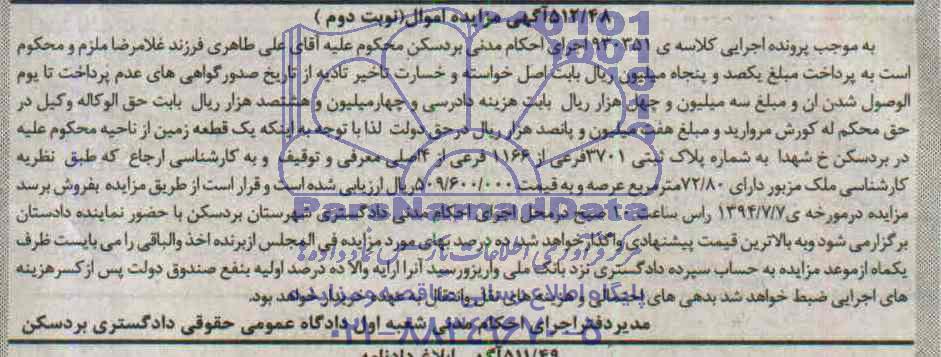 ۵۱۲/۴۸آگهی مزایده اموال(نوبت دوم )
به موجب پرونده اجرایی کلاسه ی ۹۳۰۳۵۱ اجرای احکام مدنی بردسکن محکوم علیه آقای علی طاهری فرزند غلامرضا ملزم و محکوم
است به پرداخت مبلغ یکصد و پنجاه میلیون ریال بابت اصل خواسته و خسارت تاخیر تادیه از تاریخ صدورگواهی های عدم پرداخت تا یوم
الوصول شدن ان و مبلغ سه میلیون و چهل هزار ریال بابت هزینه دادرسی و چهارمیلیون و هشتصد هزار ریال بابت حق الوکاله وکیل در
حق محکم له کورش مروارید و مبلغ هفت میلیون و پانصد هزار ریال درحق دولت لذا با توجه به اینکه یک قطعه زمین از ناحیه محکوم علیه
در بردسکن خ شهدا به شماره پلاک ثبتی ۳۷۰۱فرعی از ۱۱۶۶ فرعی از ۴اصلی معرفی و توقیف و به کارشناسی ارجاع که طبق نظریه
کارشناسی ملک مزبور دارای ۷۲/۸۰مترمربع عرصه و به قیمت ۵۰۹/۶۰۰/۰۰۰ریال ارزیابی شده است و قرار است از طریق مزایده بفروش برسد
مزایده درمورخه ی۱۳۹۴/۷/۷ راس ساعت ۱۰ صبح درمحل اجرای احکام مدنی دادگستری شهرستان بردسکن با حضور نماینده دادستان
برگزارمی شود وبه بالاترین قیمت پیشنهادی واگذارخواهد شد. ده درصد بهای مورد مزایده فی المجلس ازبرنده اخذ والباقی را می بایست ظرف
یکماه ازموعد مزایده به حساب سپرده دادگستری نزد بانک ملی واریزورسید آنرا ارایه والا ده درصد اولیه بنفع صندوق دولت پس ازکسرهزینه
های اجرایی ضبط خواهد شد بدهی های احتمالی و هزینه های نقل وانتقال به عهده خریدار خواهد بود.
مدیردفتراجرای احکام مدنی شعبه اول دادگاه عمومی حقوقی دادگستری بردسکن
ParsNamadData
مرکز فرآوری اطلاعات پارس نماد داده ها
پایگاه اطلاع رسانی مناقصه و مزایده
۰۲۱-۸۸۳۴۹۶۷۰-۵
۵۱۱/۴۹آگهی ابلاغ دادنامه